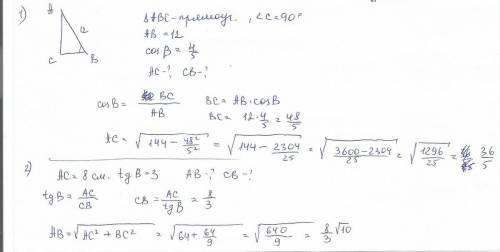 1)
A
12
C
B
ΔABC-прямоуг. , ∠C=90°
AB=12
cosB = 4/5
AC-? CB-?
cosB = BC/AB BC = AB·cosB
BC = 12·4/5 = 48/5
AC = √(144 - 48²/5²) = √(144 - 2304/25) = √((3600-2304)/25) = √(1296/25) = 36/5
2)
AC = 8 см. tgB = 3 AB-? CB-?
tgB = AC/CB CB = AC/tgB = 8/3
AB = √(AC² + BC²) = √(64 + 64/9) = √(640/9) = 8/3 √10